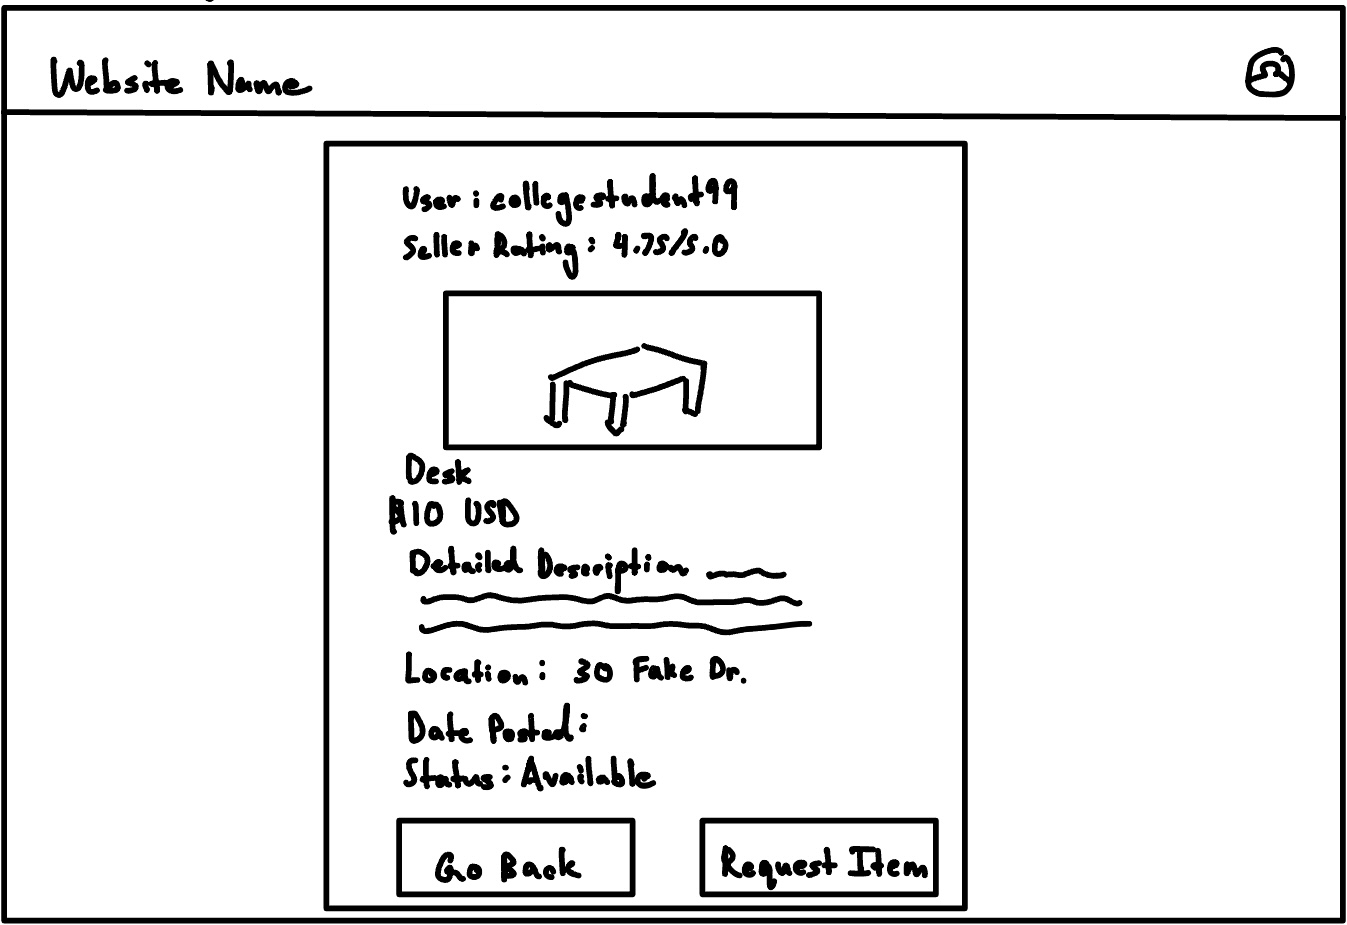 Website Name
User: collegestudent99
Seller Rating: 4.75/5.0
Desk
$10 USD
Detailed Description
Location: 30 Fake Dr.
Date Posted:
Status: Available
Go Back
Request Item